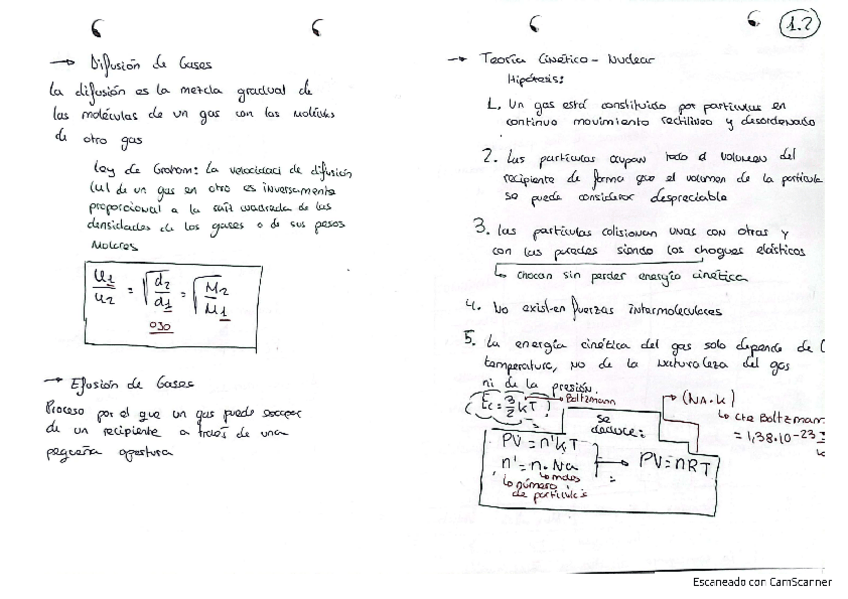 → Difusión de Gases
La difusión es la mezcla gradual de
las moléculas de un gas con las moléculas
de otro gas
Ley de Graham: La velocidad de difusión
(u) de un gas en otro es inversamente
proporcional a la raíz cuadrada de las
densidades de los gases o de sus pesos
Molares
u1/u2 = √d2/d1 = √M2/M1
OJO
→ Efusión de Gases
Proceso por el que un gas puede escapar
de un recipiente a través de una
pequeña apertura
1.2
→ Teoría Cinético - Nuclear
Hipótesis:
1. Un gas está constituido por partículas en
continuo movimiento rectilíneo y desordenado
2. Las partículas ocupan todo el volumen del
recipiente de forma que el volumen de la partícula
se puede considerar despreciable
3. las partículas colisionan unas con otras y
con las paredes siendo los choques elásticos
↳ chocan sin perder energía cinética
4. No existen fuerzas intermoleculares
5. La energía cinética del gas solo depende de l
temperatura, no de la naturaleza del gas
ni de la presión.
(Ec = 3/2 kT) → Boltzmann
→ (NA·k)
↳ cte Boltzmann
= 1,38·10-23
se
deduce:
PV = n'kT
n' = n·Na → PV = nRT
↳ moles
↳ número
de partículas
Escaneado con CamScanner